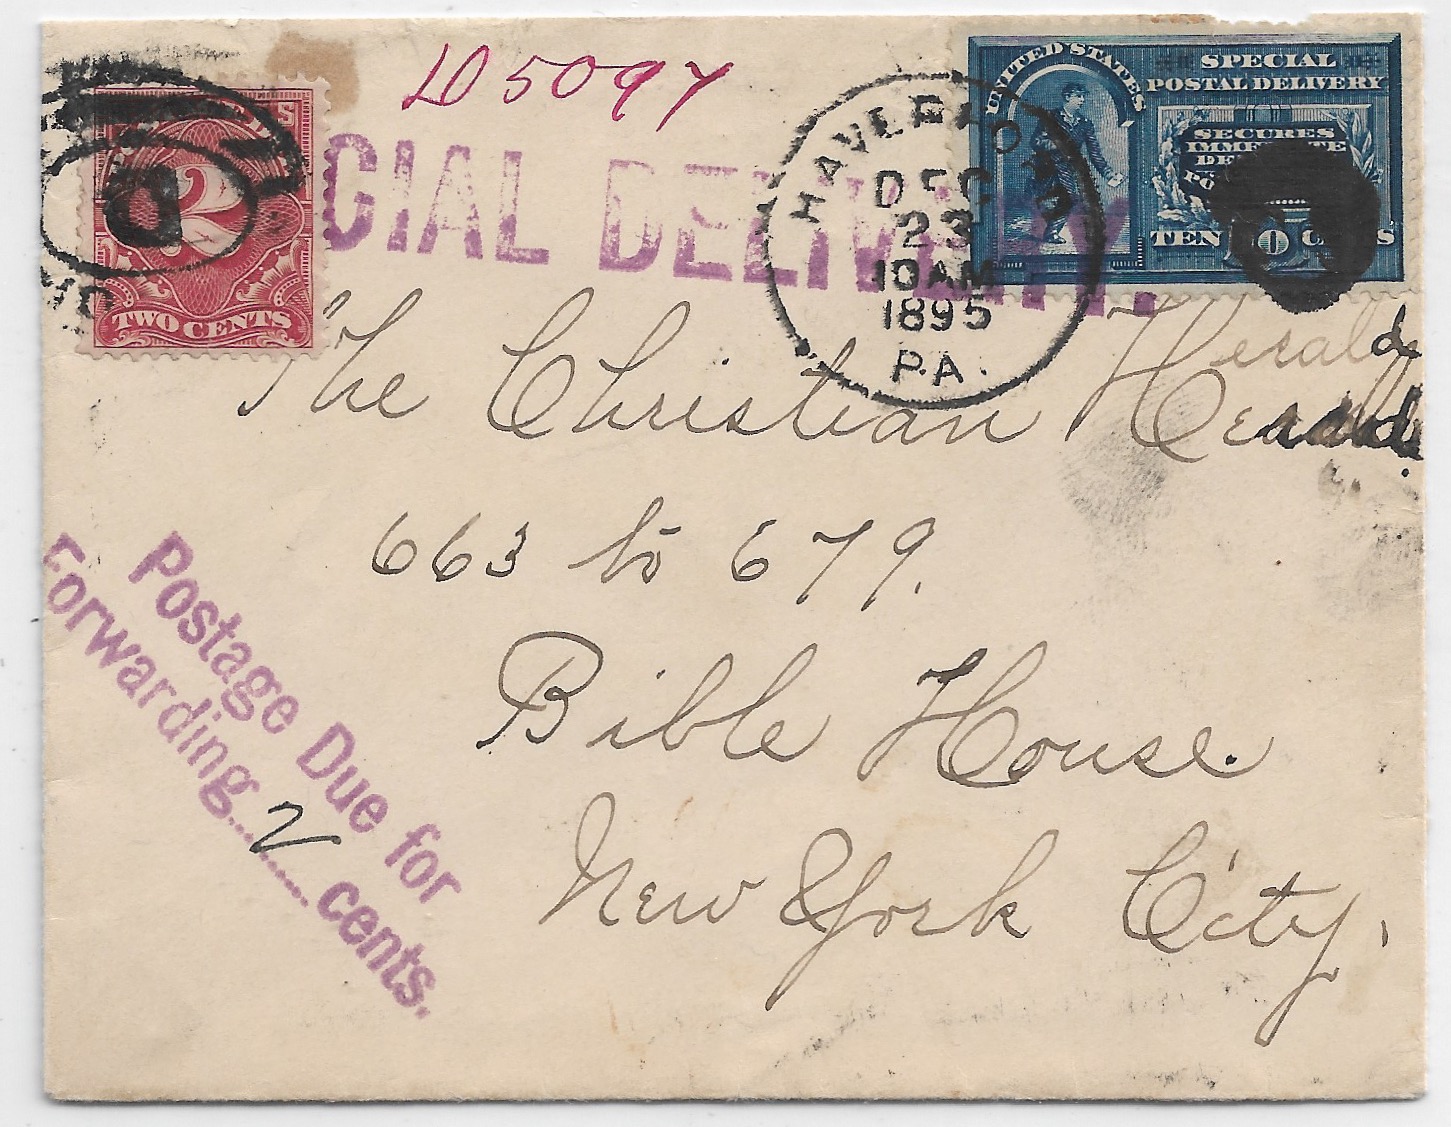 105097
UNITED STATES
SPECIAL
POSTAL DELIVERY
SECURES
TEN 10 CENTS
2
TWO CENTS
CIAL DELIVERY.
HAVERFORD
DEC
23
10 AM
1895
PA.
The Christian Herald
663 to 679.
Bible House.
New York City,
Postage Due for
Forwarding 2 cents.